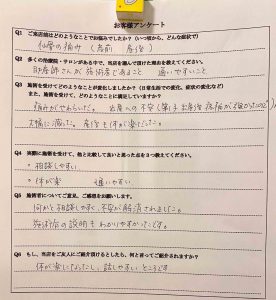 お客様アンケート
Q1 ご来店前はどのようなことでお悩みでしたか?(いつ頃から、どんな症状で)
仙骨の痛み (産前 産後)
Q2 多くの治療院・サロンがある中で、当店を選んで頂けた理由を教えてください。
助産師さんが施術者であること 通いやすいこと
Q3 施術を受けて、どのようなことが変化しましたか?(日常生活での変化、症状の変化など)
また、施術を受けて、どのようなことに満足していますか?
痛みがやわらいだ。 出産への不安(第1子出産後 腰痛が強かったので)
大幅に減った。産後も何か楽でした。
Q4 実際に施術を受けて、他と比較して良いと思った点を3つ教えてください。
・相談しやすい
・体が楽 ・通いやすい
Q5 施術者についてご意見、ご感想をお願いします。
何かと相談しやすく、不安が解消されました。
施術の説明もわかりやすかったです。
Q6 もし、当店をご友人にご紹介頂けるとしたら、何と言ってご紹介されますか?
体が楽になったし、話しやすいところです